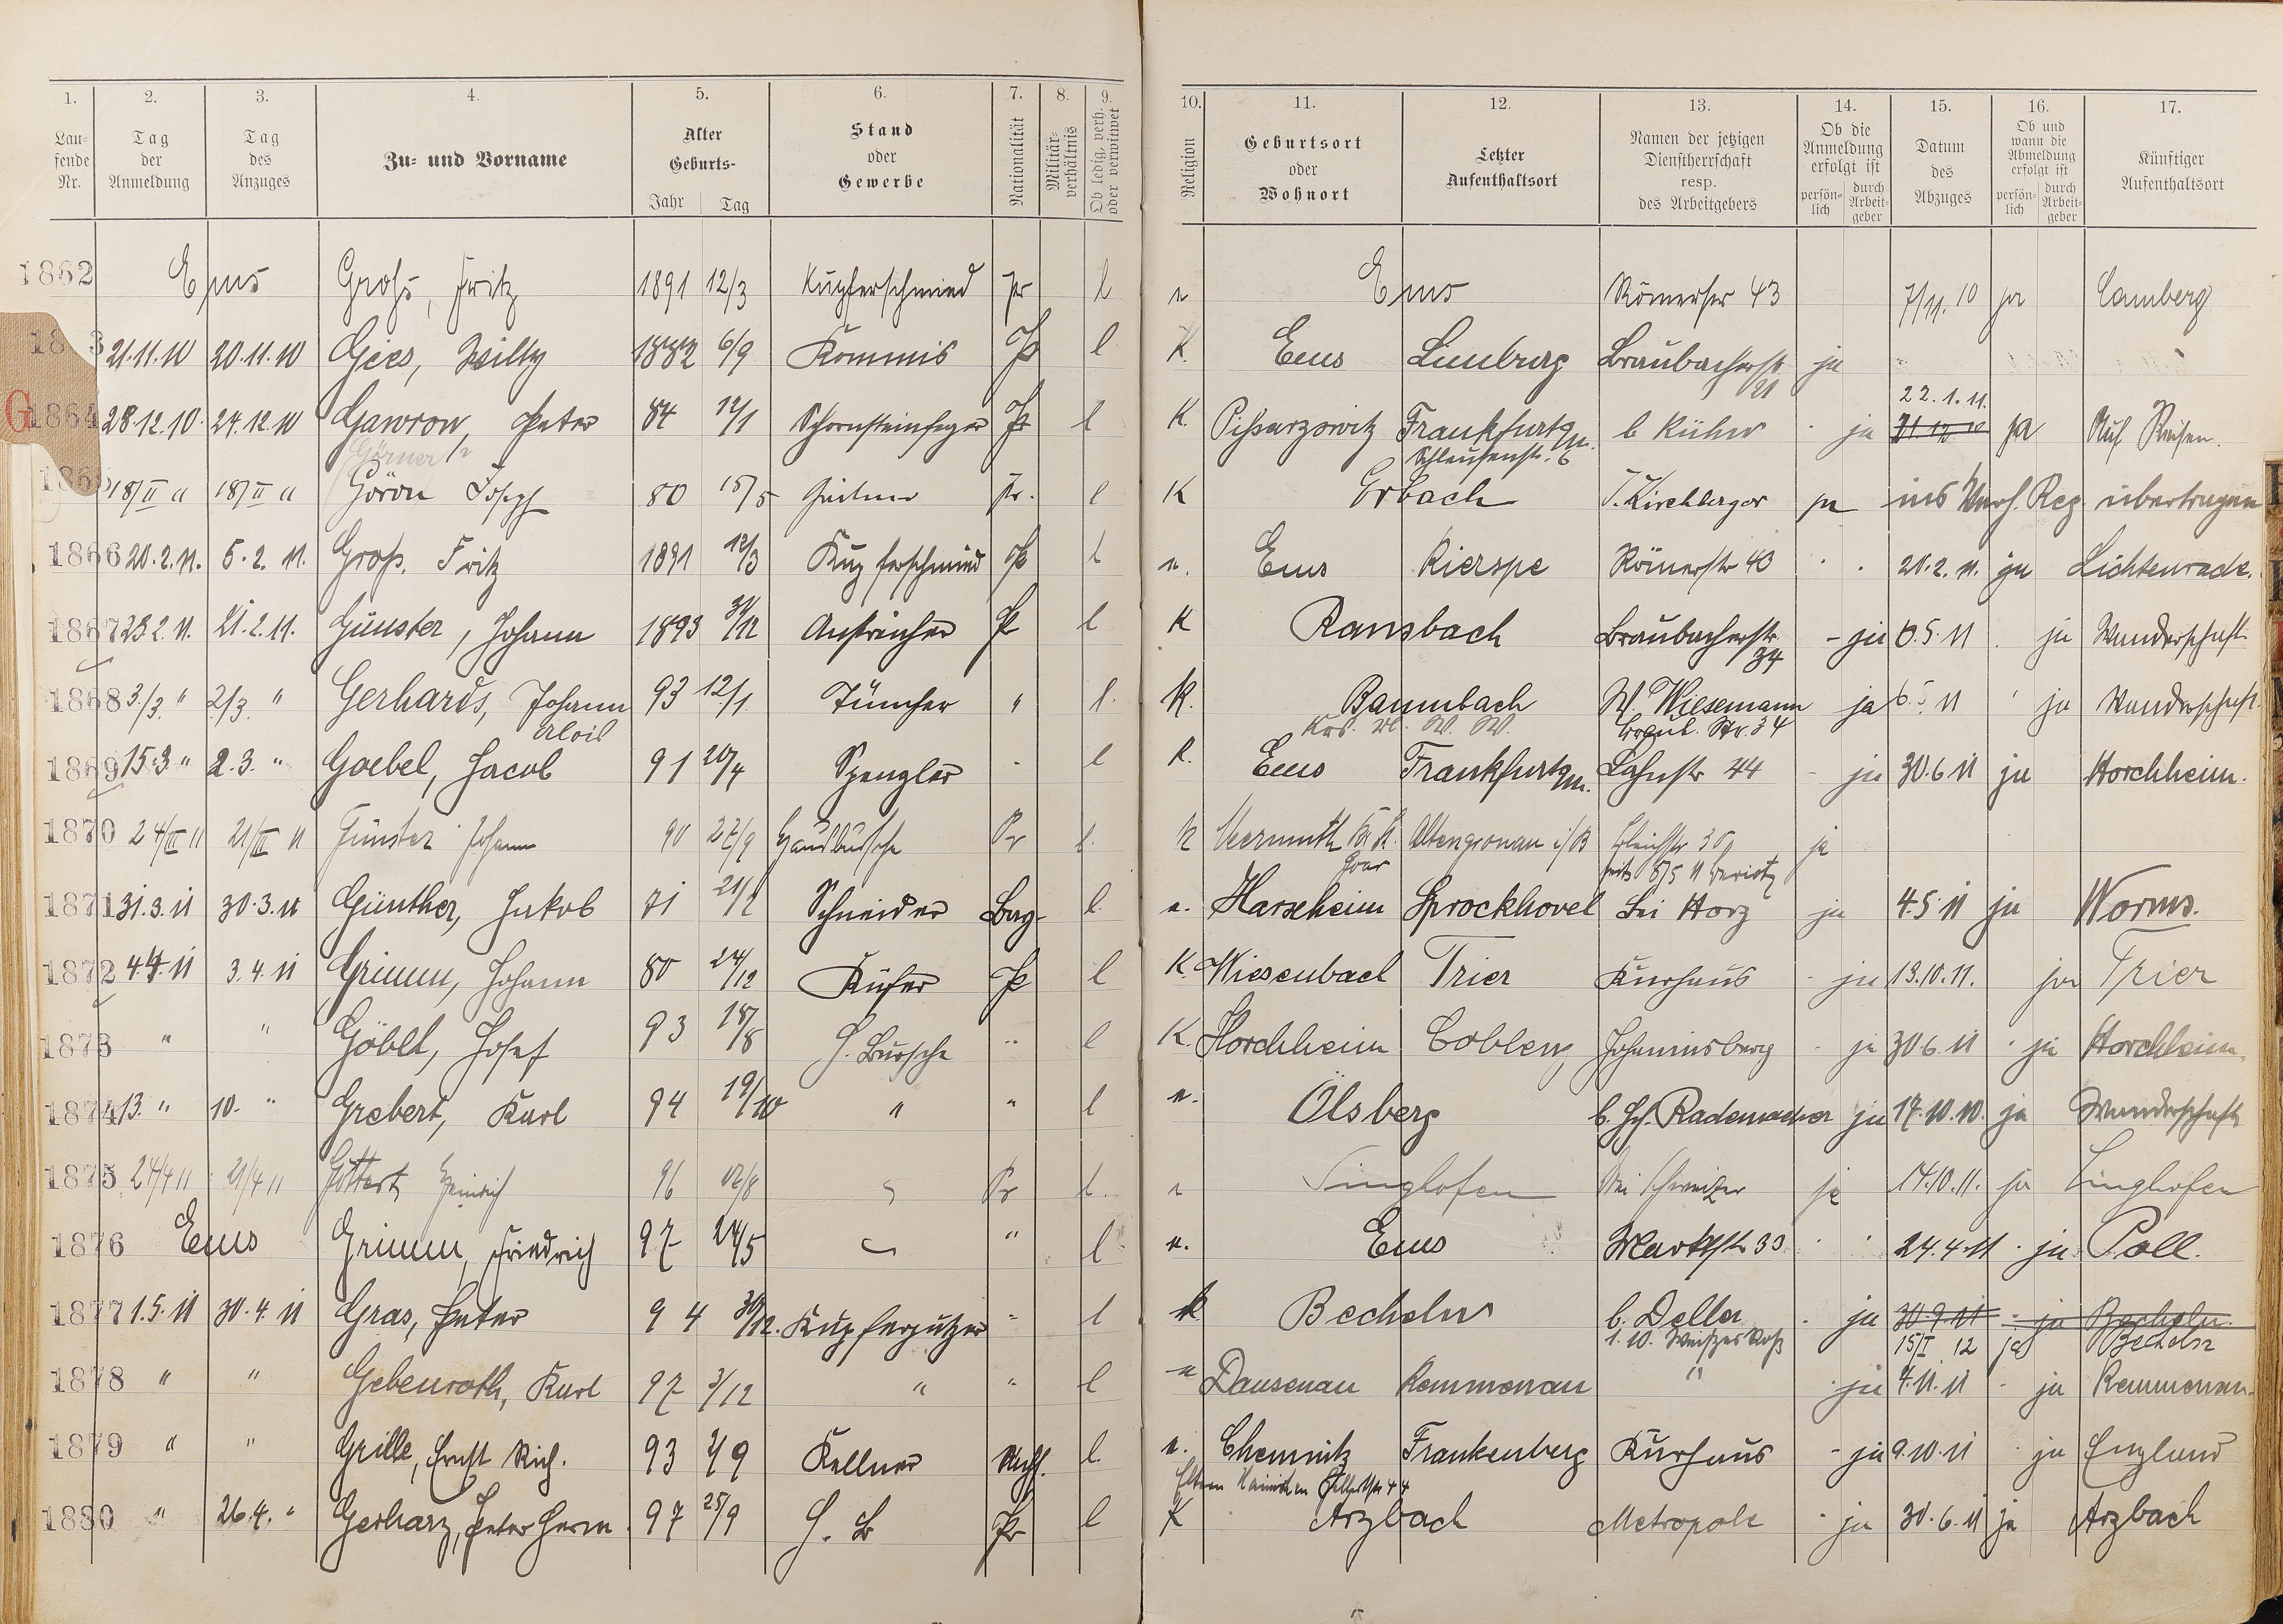 1. 2. 3. 4. 5. 6. 7. 8. 9. 10. 11. 12. 13. 14. 15. 16. 17.
Lau-fende Nr. Tag der Anmeldung Tag des Anzuges Zu- und Vorname Alter Geburts- Jahr Tag Stand oder Gewerbe Nationalität Militär-verhältnis Ob ledig, verh. oder verwitwet Religion Geburtsort oder Wohnort Letzter Aufenthaltsort Namen der jetzigen Dienstherrschaft resp. des Arbeitgebers Ob die Anmeldung erfolgt ist persön-lich durch Arbeit-geber Datum des Abzuges Ob und wann die Abmeldung erfolgt ist persön-lich durch Arbeit-geber Künftiger Aufenthaltsort
1862 Ems Groß, Fritz 1891 12/3 Kupferschmied Pr l Ems Römerstr 43 7/11. 10 ja Camberg
21.11.10 20.11.10 Gies, Willy 1882 6/9 Kommis Pr l K. Ems Limburg Braubacherstr. 21 ja
22.1.11.
G 1864 28.12.10. 24.12.10 Gawron, Peter 84 12/1 Schornsteinfeger Pr l K. Frankfurt a/M. b Kühn ja 31 12 10 ja Auf Reisen.
Görner Schleusenstr. 6
18/II 11 18/II 11 Göron Josef 80 15/5 Pr. l K Erbach J. Kirchberger ja ins Reg übertragen
1866 20.2.11. 5.2.11. Groß, Fritz 1891 12/3 Kupferschmied Pr l Ems Kierspe Römerstr 43 21.2.11. ja Lichtenrade.
1867 23 2.11. 21.2.11. Günster, Johann 1893 31/12 Anstreicher Pr l K Ransbach Braubacherstr. 34 - ja 6.5.11 ja Wanderschaft
1868 3/3. " 2/3. " Gerhards, Johann Alois 93 12/1 Tüncher " l. K. Baumbach W. Wiesemann ja 6.5.11 ja Wanderschaft.
W. W. Braub. Str. 34
1869 15.3 " 2.3. " Goebel, Jacob 91 20/4 Spengler l K. Ems Frankfurt a/M. Lahnstr 44 - ja 30.6 11 ja Horchheim.
1870 24/III 11 21/III 11 Günster Johann 90 27/9 Hausbursche Pr l. Altengronau ja
1871 31.3.11 30.3.11 Günther, Jakob 71 Schneider l. Harxheim Sprockhövel bei Horz ja 4.5.11 ja Worms.
1872 4.4.11 3.4.11 Grimm, Johann 80 24/12 Küfer Pr l K. Wiesenbach Trier Kurhaus - ja 13.10.11. ja Trier
1873 " " Göbel, Josef 93 18/8 H. Bursche " l K. Horchheim Coblenz Johannisberg - ja 30.6.11 ja Horchheim.
1874 13. " 10. " Grebert, Karl 94 19/10 " " l Ölsberg b. Hch. Rademacher ja 17.10.10. ja Wanderschaft
1875 24/4 11 21/4 11 Göttert Heinrich 96 Pr l. Singhofen Bei Schweizer ja 14.10.11. ja Singhofen
1876 Ems Grimm, Friedrich 97 24/5 " l Ems Marktstr 30 24.4.11 ja Poll.
1877 1.5.11 30.4.11 Gras, Peter 94 30/12. Kupferputzer " l k Becheln b. Deller ja 30.9.11 - ja Becheln.
1.10. Weißes Roß 15/I 12 ja Becheln
1878 " " Gebenroth, Karl 97 3/12 " " l Dausenau Kemmenau " ja 4.11.11 - ja Kemmenau.
1879 " " Grille, Ernst Rich. 93 2/9 Kellner l. Chemnitz Frankenberg Kurhaus - ja 9.10.11 ja England
Eltern
1880 " 26.4. " Gerharz, Peter Herm. 97 25/9 H. B Pr l K Arzbach Metropole - ja 30.6.11 ja Arzbach